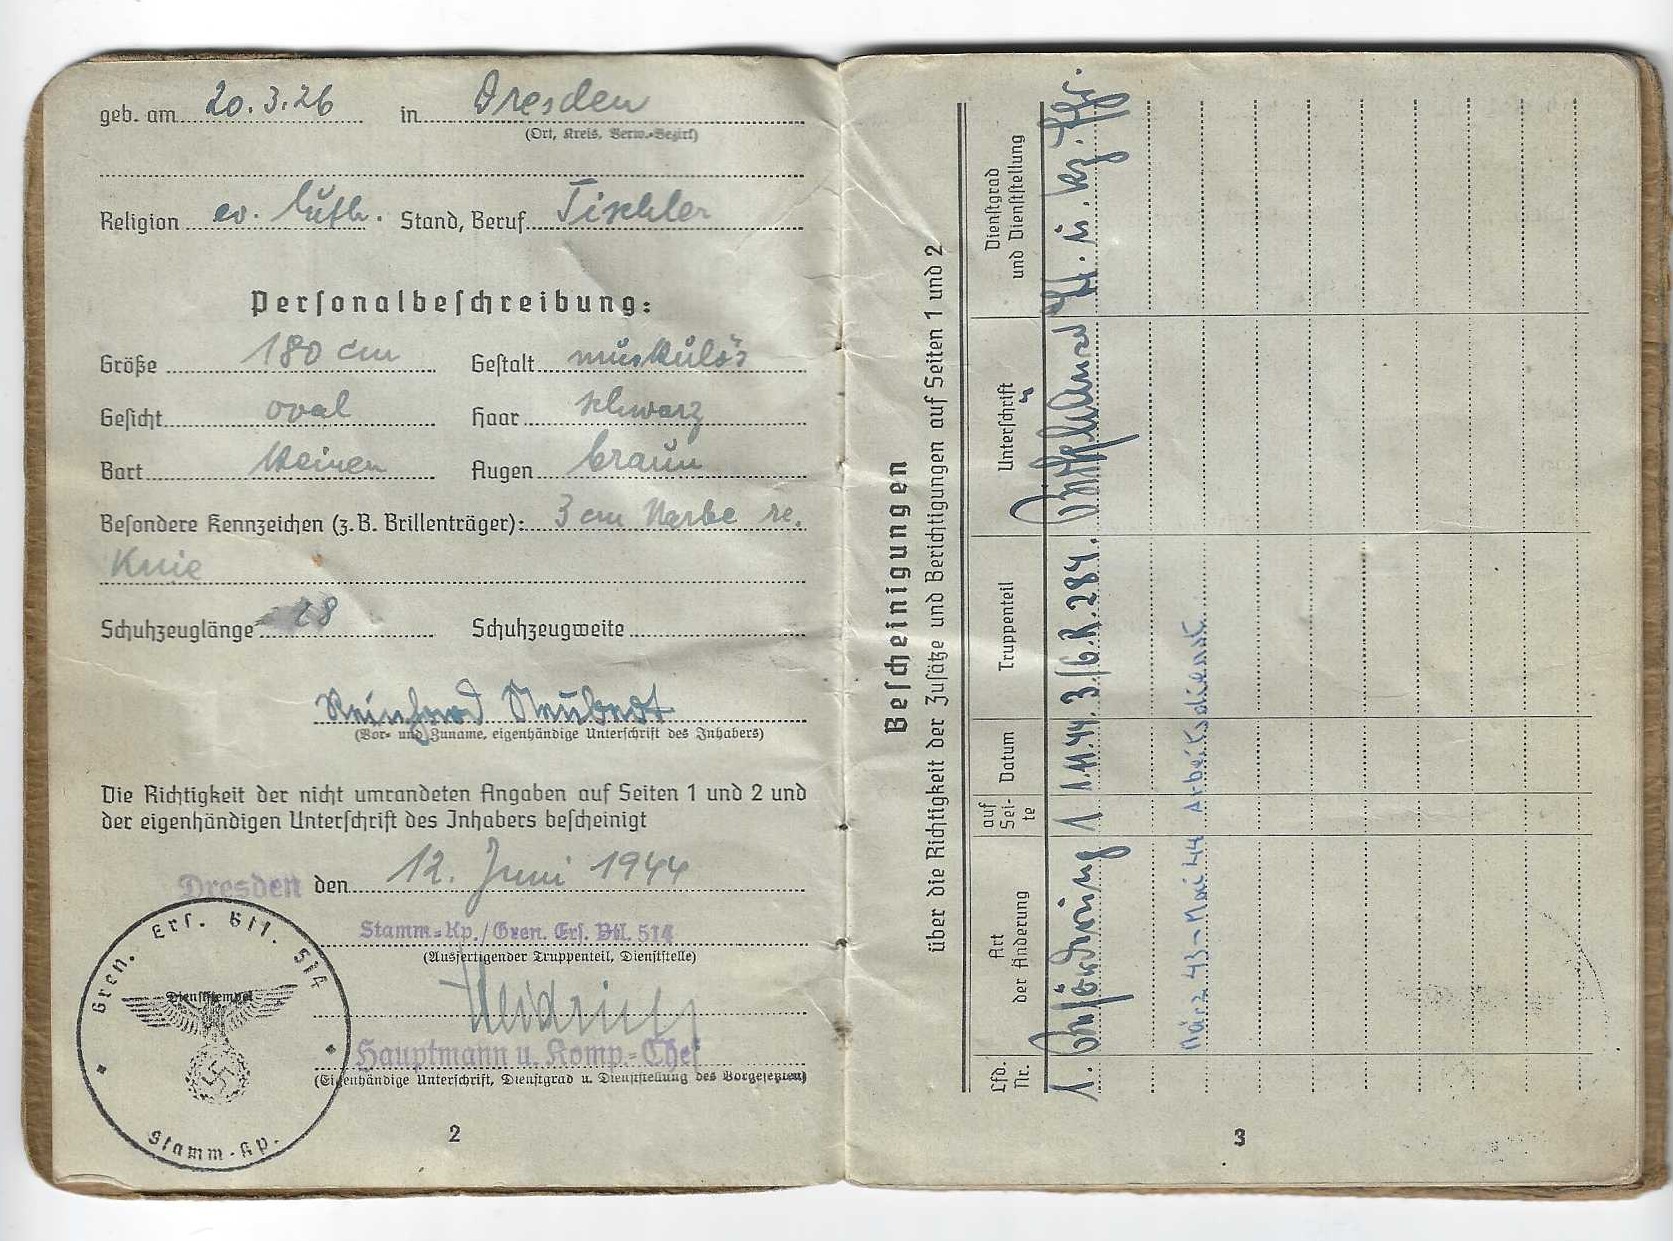 geb. am 20.3.26 in Dresden
(Ort, Kreis, Verw.-Bezirk)
Religion ev. luth. Stand, Beruf Tischler
Personalbeschreibung:
Größe 180 cm Gestalt muskulös
Gesicht oval Haar schwarz
Bart keinen Augen braun
Besondere Kennzeichen (z. B. Brillenträger): 3 cm Narbe re.
Knie
Schuhzeuglänge 28 Schuhzeugweite
Reinhard Neubert
(Vor- und Zuname, eigenhändige Unterschrift des Inhabers)
Die Richtigkeit der nicht umrandeten Angaben auf Seiten 1 und 2 und
der eigenhändigen Unterschrift des Inhabers bescheinigt
Dresden den 12. Juni 1944
Stamm-Kp./Gren. Ers. Btl. 514
(Ausfertigender Truppenteil, Dienststelle)
Hauptmann u. Komp.-Chef
(Eigenhändige Unterschrift, Dienstgrad u. Dienststellung des Vorgesetzten)
Gren. Ers. Btl. 514
Dienststempel
Stamm-Kp.
2
Bescheinigungen
über die Richtigkeit der Zusätze und Berichtigungen auf Seiten 1 und 2
Lfd. Nr. Art der Änderung auf Sei-te Datum Truppenteil Unterschrift Dienstgrad und Dienststellung
1. Beförderung 1 1.11.44. 3/G.R. 284. Lt. u. Kp. Fhr.
März 43 - Mai 44 Arbeitsdienst.
3